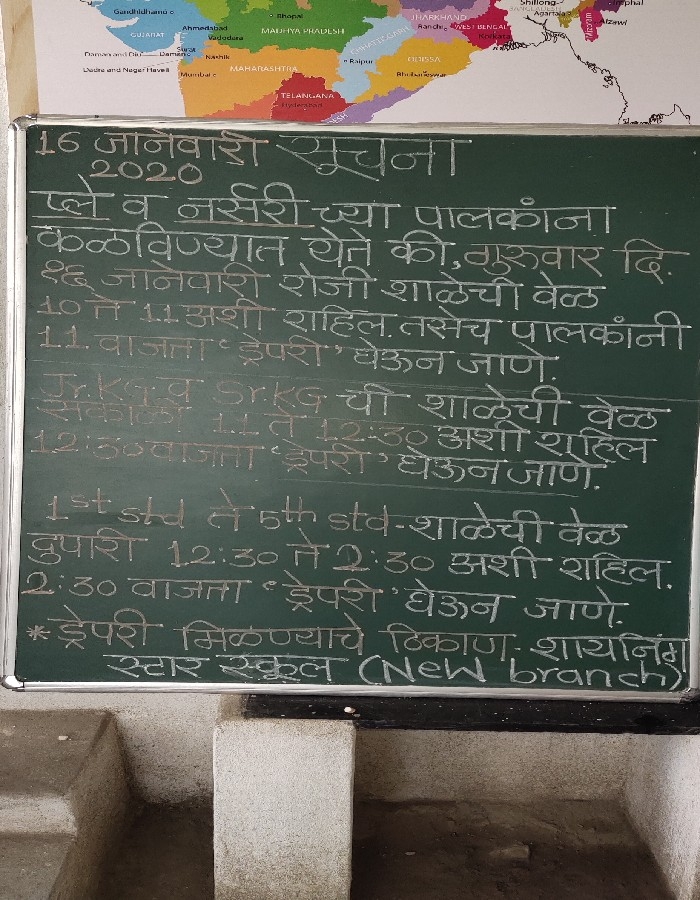 Gandhidhamo
Bhopal
JHARKHAND
Shillong
BANGLADESH
GUJARAT
Ahmedabad
Vadodara
MADHYA PRADESH
Ranchi
WEST BENGAL
Kolkata
Agartala
Mizoram
Aizawl
Daman and Diu
Surat
Daman
Nashik
CHHATTISGARH
Raipur
ODISSA
Dadra and Nagar Haveli
Mumbai
MAHARASHTRA
Bhubaneswar
TELANGANA
Hyderabad
16 जानेवारी सूचना
2020
प्ले व नर्सरी च्या पालकांना
कळविण्यात येते की, गुरुवार दि.
१६ जानेवारी रोजी शाळेची वेळ
10 ते 11 अशी राहिल. तसेच पालकांनी
11 वाजता ' ड्रेपरी ' घेऊन जाणे.
Jr.KG व Sr.KG ची शाळेची वेळ
सकाळी 11 ते 12:30 अशी राहिल
12:30 वाजता ' ड्रेपरी ' घेऊन जाणे.
1st std ते 5th std - शाळेची वेळ
दुपारी 12:30 ते 2:30 अशी राहिल.
2:30 वाजता ' ड्रेपरी ' घेऊन जाणे.
* ड्रेपरी मिळण्याचे ठिकाण - शायनिंग
स्टार स्कूल (New branch)